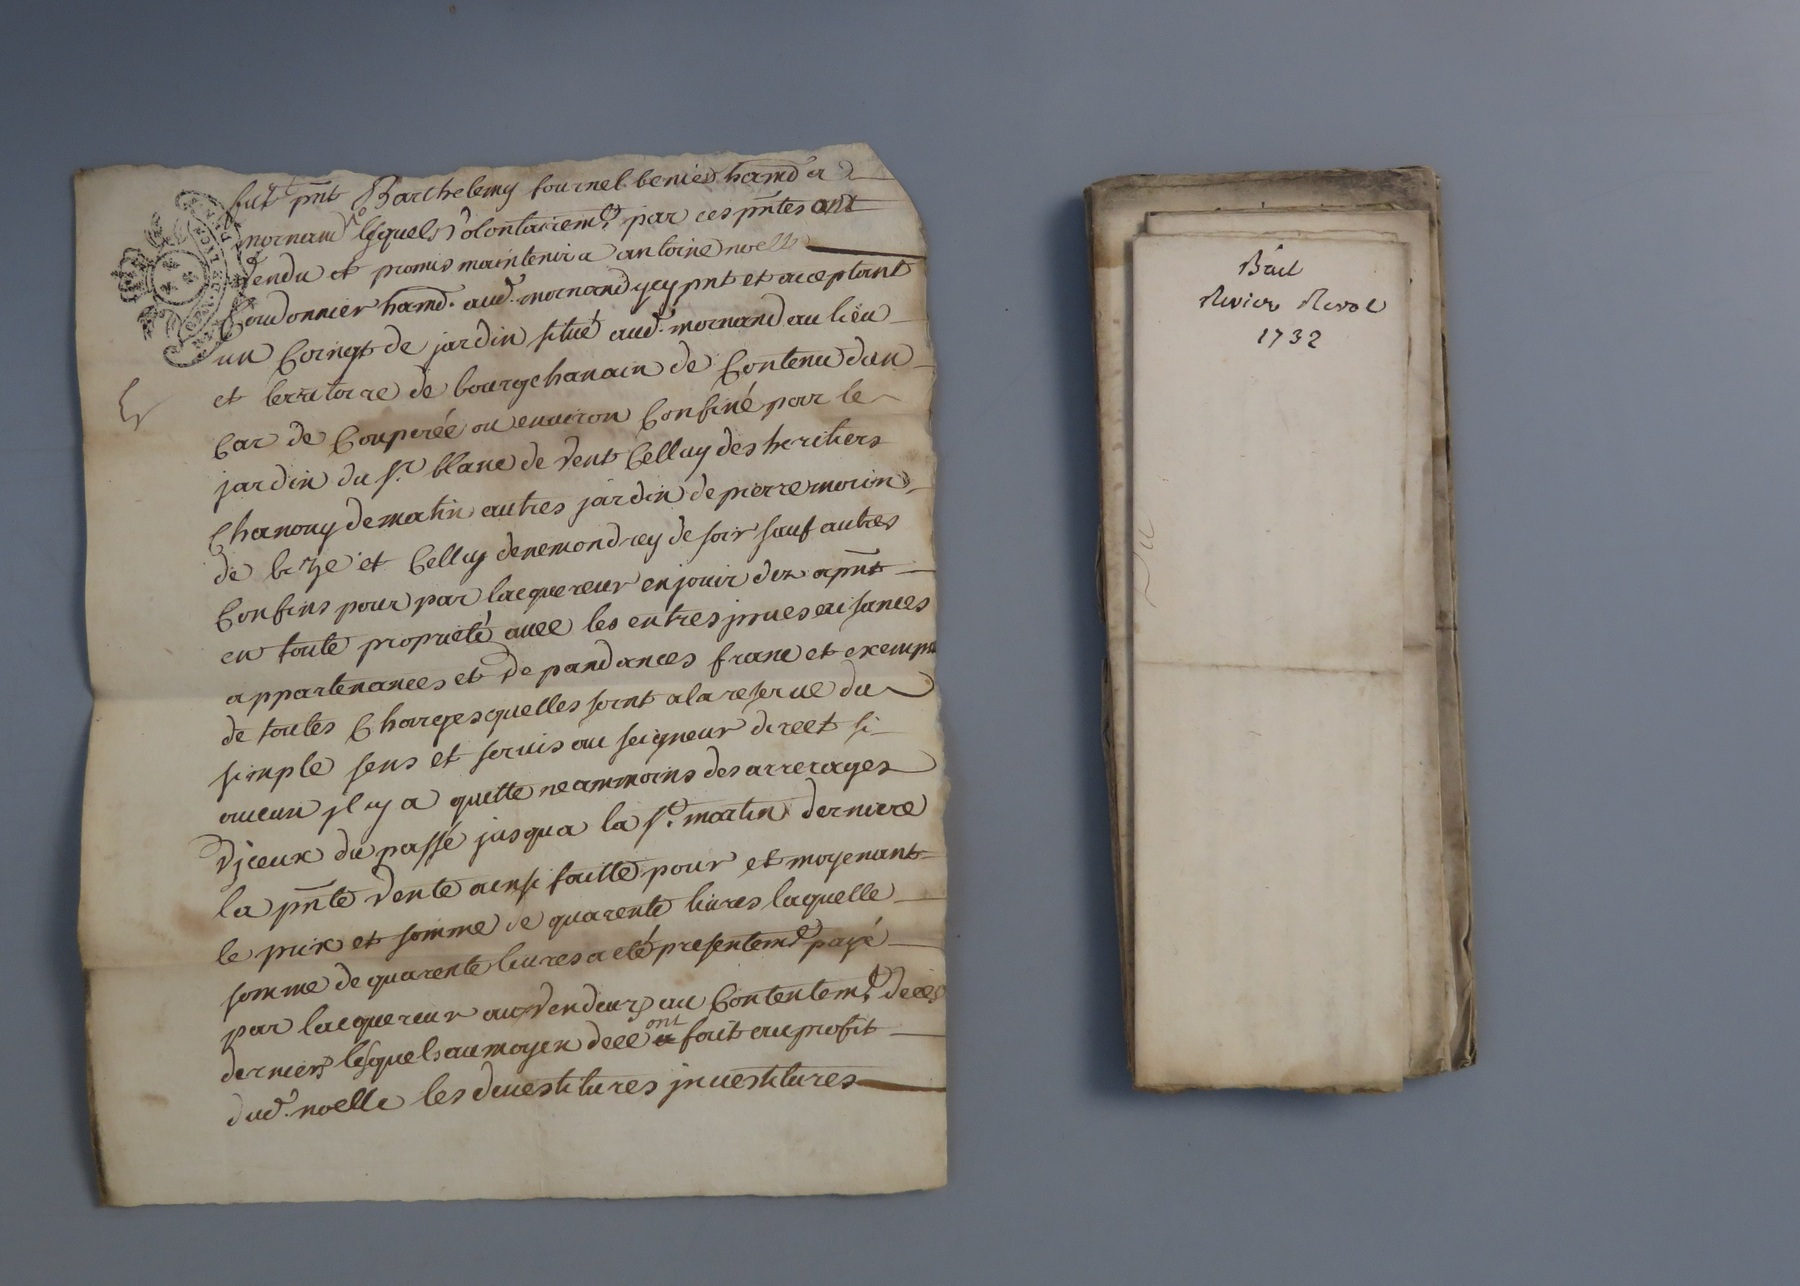 fut pnt Barthelemy fournel benier hamd a
mornand lesquels volontairemt. par ces pntes ont
vendu et promis maintenir a antoine noelle
Coudonnier hamd. aud. mornand ycy pnt et aceptant
un Coing de jardin situé aud. mornand au lieu
et territoire de bourgchanain de Contenu dun
Car de Couperée ou environ Confiné par le
jardin du Sr. blanc de vent Celluy des heritiers
Chanouy de matin autres jardin de pierre morin
de bize et Celluy de nemondrey de soir sauf autres
Confins pour par lacquereur en jouir dez apnt
en toute proprieté avec les entres jssues aisances
appartenances et dependances franc et exempt
de toutes Charges quelles soint a la reserve du
simple sens et servis au seigneur direct si
aucun jl y a quitte neammoins des arrerages
djceux du passé jusqua la St. martin derniere
la pnte vente ainsi faitte pour et moyenant
le prix et somme de quarente livres laquelle
somme de quarente livres a eté presentemt payé
par lacquereur aux vendeurs au Contentemt. de ces
derniers lesquels au moyen de ce ont fait au profit
dud. noelle les devestitures jnvestitures
Bail
Rivier Revol
1732